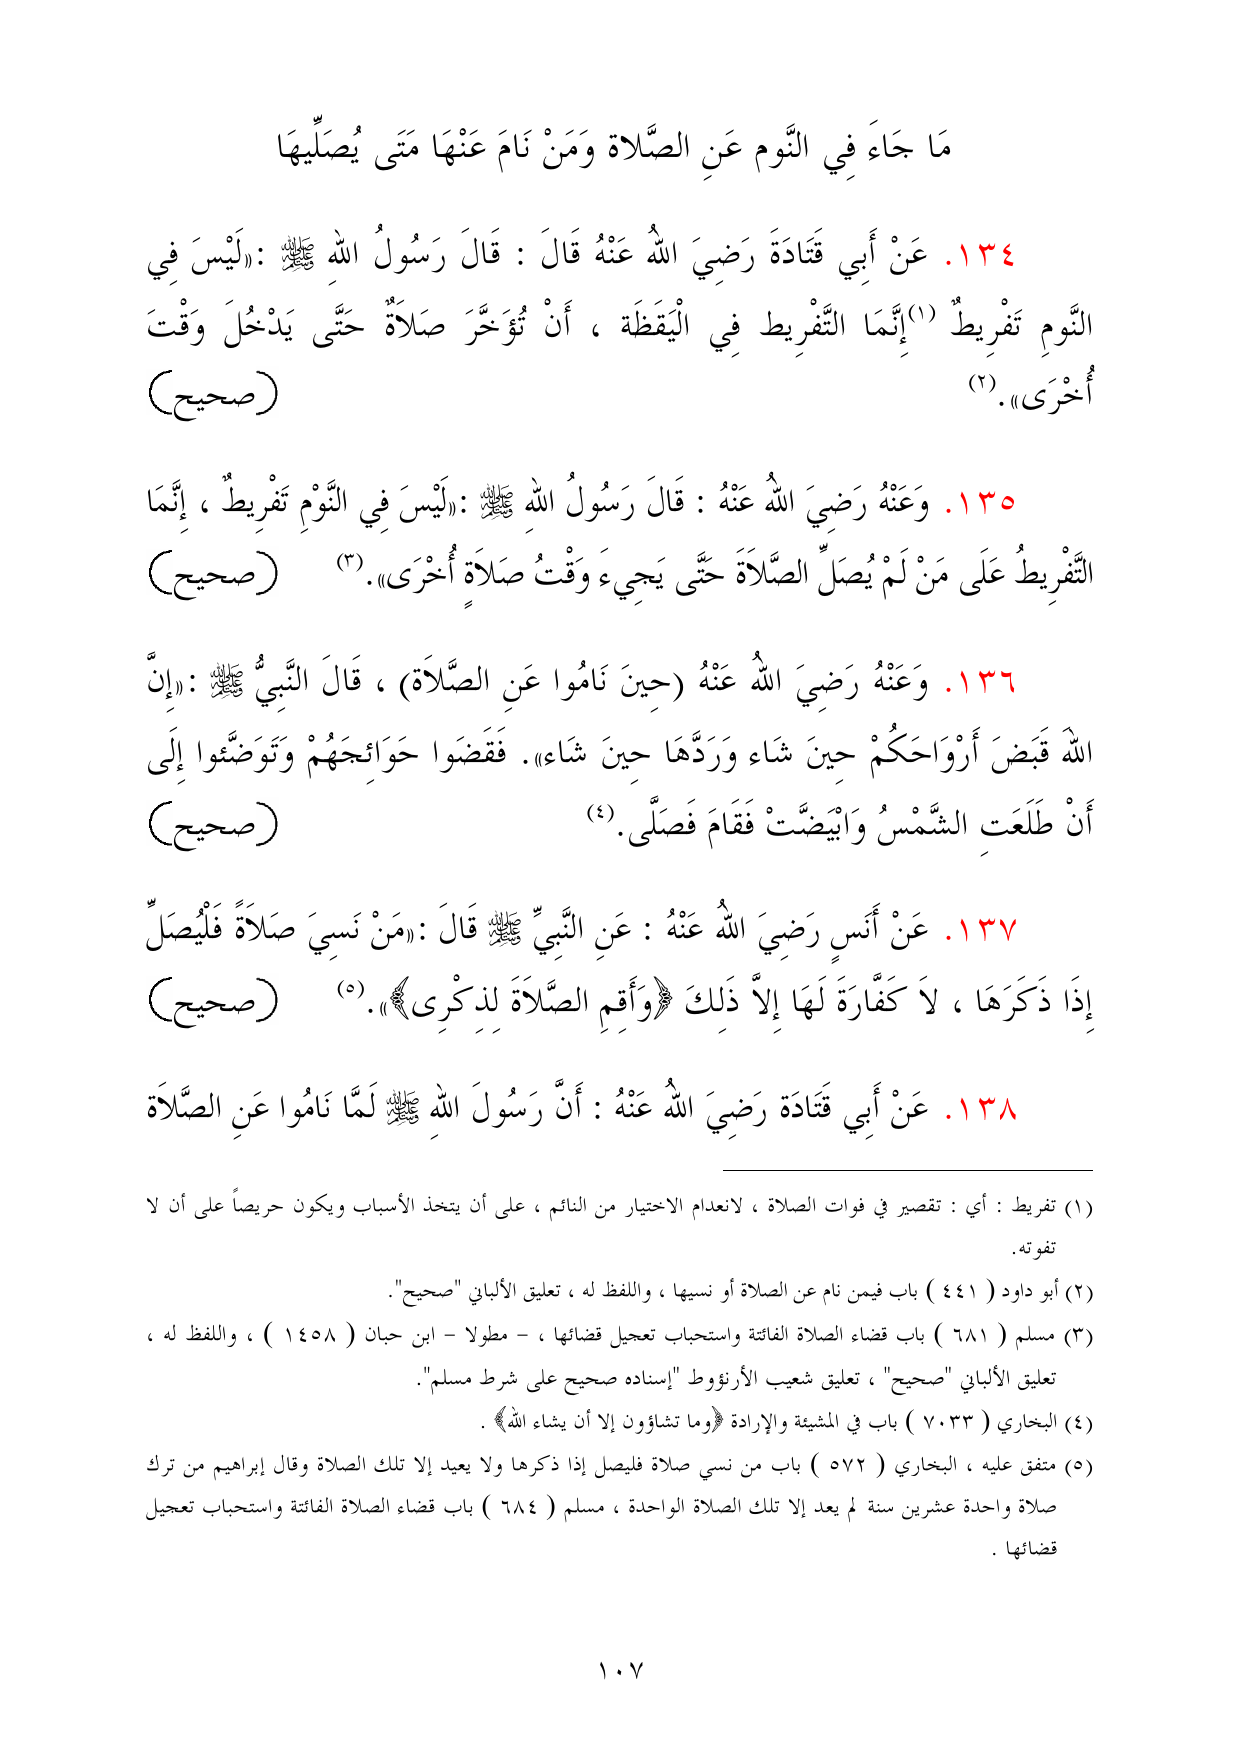 مَا جَاءَ فِي النَّوم عَنِ الصَّلاة وَمَنْ نَامَ عَنْهَا مَتَى يُصَلِّيهَا
١٣٤. عَنْ أَبِي قَتَادَةَ رَضِيَ اللهُ عَنْهُ قَالَ : قَالَ رَسُولُ اللهِ ﷺ :«لَيْسَ فِي
النَّومِ تَفْرِيطٌ (١)إِنَّمَا التَّفْرِيط فِي الْيَقَظَة ، أَنْ تُؤَخَّرَ صَلاَةٌ حَتَّى يَدْخُلَ وَقْتَ
أُخْرَى».(٢) (صحيح)
١٣٥. وَعَنْهُ رَضِيَ اللهُ عَنْهُ : قَالَ رَسُولُ اللهِ ﷺ :«لَيْسَ فِي النَّوْمِ تَفْرِيطٌ ، إِنَّمَا
التَّفْرِيطُ عَلَى مَنْ لَمْ يُصَلِّ الصَّلاَةَ حَتَّى يَجِيءَ وَقْتُ صَلاَةٍ أُخْرَى».(٣) (صحيح)
١٣٦. وَعَنْهُ رَضِيَ اللهُ عَنْهُ (حِينَ نَامُوا عَنِ الصَّلاَة) ، قَالَ النَّبِيُّ ﷺ :«إِنَّ
اللهَ قَبَضَ أَرْوَاحَكُمْ حِينَ شَاء وَرَدَّهَا حِينَ شَاء». فَقَضَوا حَوَائِجَهُمْ وَتَوَضَّئوا إِلَى
أَنْ طَلَعَتِ الشَّمْسُ وَابْيَضَّتْ فَقَامَ فَصَلَّى.(٤) (صحيح)
١٣٧. عَنْ أَنَسٍ رَضِيَ اللهُ عَنْهُ : عَنِ النَّبِيِّ ﷺ قَالَ :«مَنْ نَسِيَ صَلاَةً فَلْيُصَلِّ
إِذَا ذَكَرَهَا ، لاَ كَفَّارَةَ لَهَا إِلاَّ ذَلِكَ ﴿وَأَقِمِ الصَّلاَةَ لِذِكْرِى﴾».(٥) (صحيح)
١٣٨. عَنْ أَبِي قَتَادَة رَضِيَ اللهُ عَنْهُ : أَنَّ رَسُولَ اللهِ ﷺ لَمَّا نَامُوا عَنِ الصَّلاَة
(١) تفريط : أي : تقصير في فوات الصلاة ، لانعدام الاختيار من النائم ، على أن يتخذ الأسباب ويكون حريصاً على أن لا
تفوته.
(٢) أبو داود ( ٤٤١ ) باب فيمن نام عن الصلاة أو نسيها ، واللفظ له ، تعليق الألباني "صحيح".
(٣) مسلم ( ٦٨١ ) باب قضاء الصلاة الفائتة واستحباب تعجيل قضائها ، – مطولا – ابن حبان ( ١٤٥٨ ) ، واللفظ له ،
تعليق الألباني "صحيح" ، تعليق شعيب الأرنؤوط "إسناده صحيح على شرط مسلم".
(٤) البخاري ( ٧٠٣٣ ) باب في المشيئة والإرادة ﴿وما تشاؤون إلا أن يشاء الله﴾ .
(٥) متفق عليه ، البخاري ( ٥٧٢ ) باب من نسي صلاة فليصل إذا ذكرها ولا يعيد إلا تلك الصلاة وقال إبراهيم من ترك
صلاة واحدة عشرين سنة لم يعد إلا تلك الصلاة الواحدة ، مسلم ( ٦٨٤ ) باب قضاء الصلاة الفائتة واستحباب تعجيل
قضائها .
١٠٧